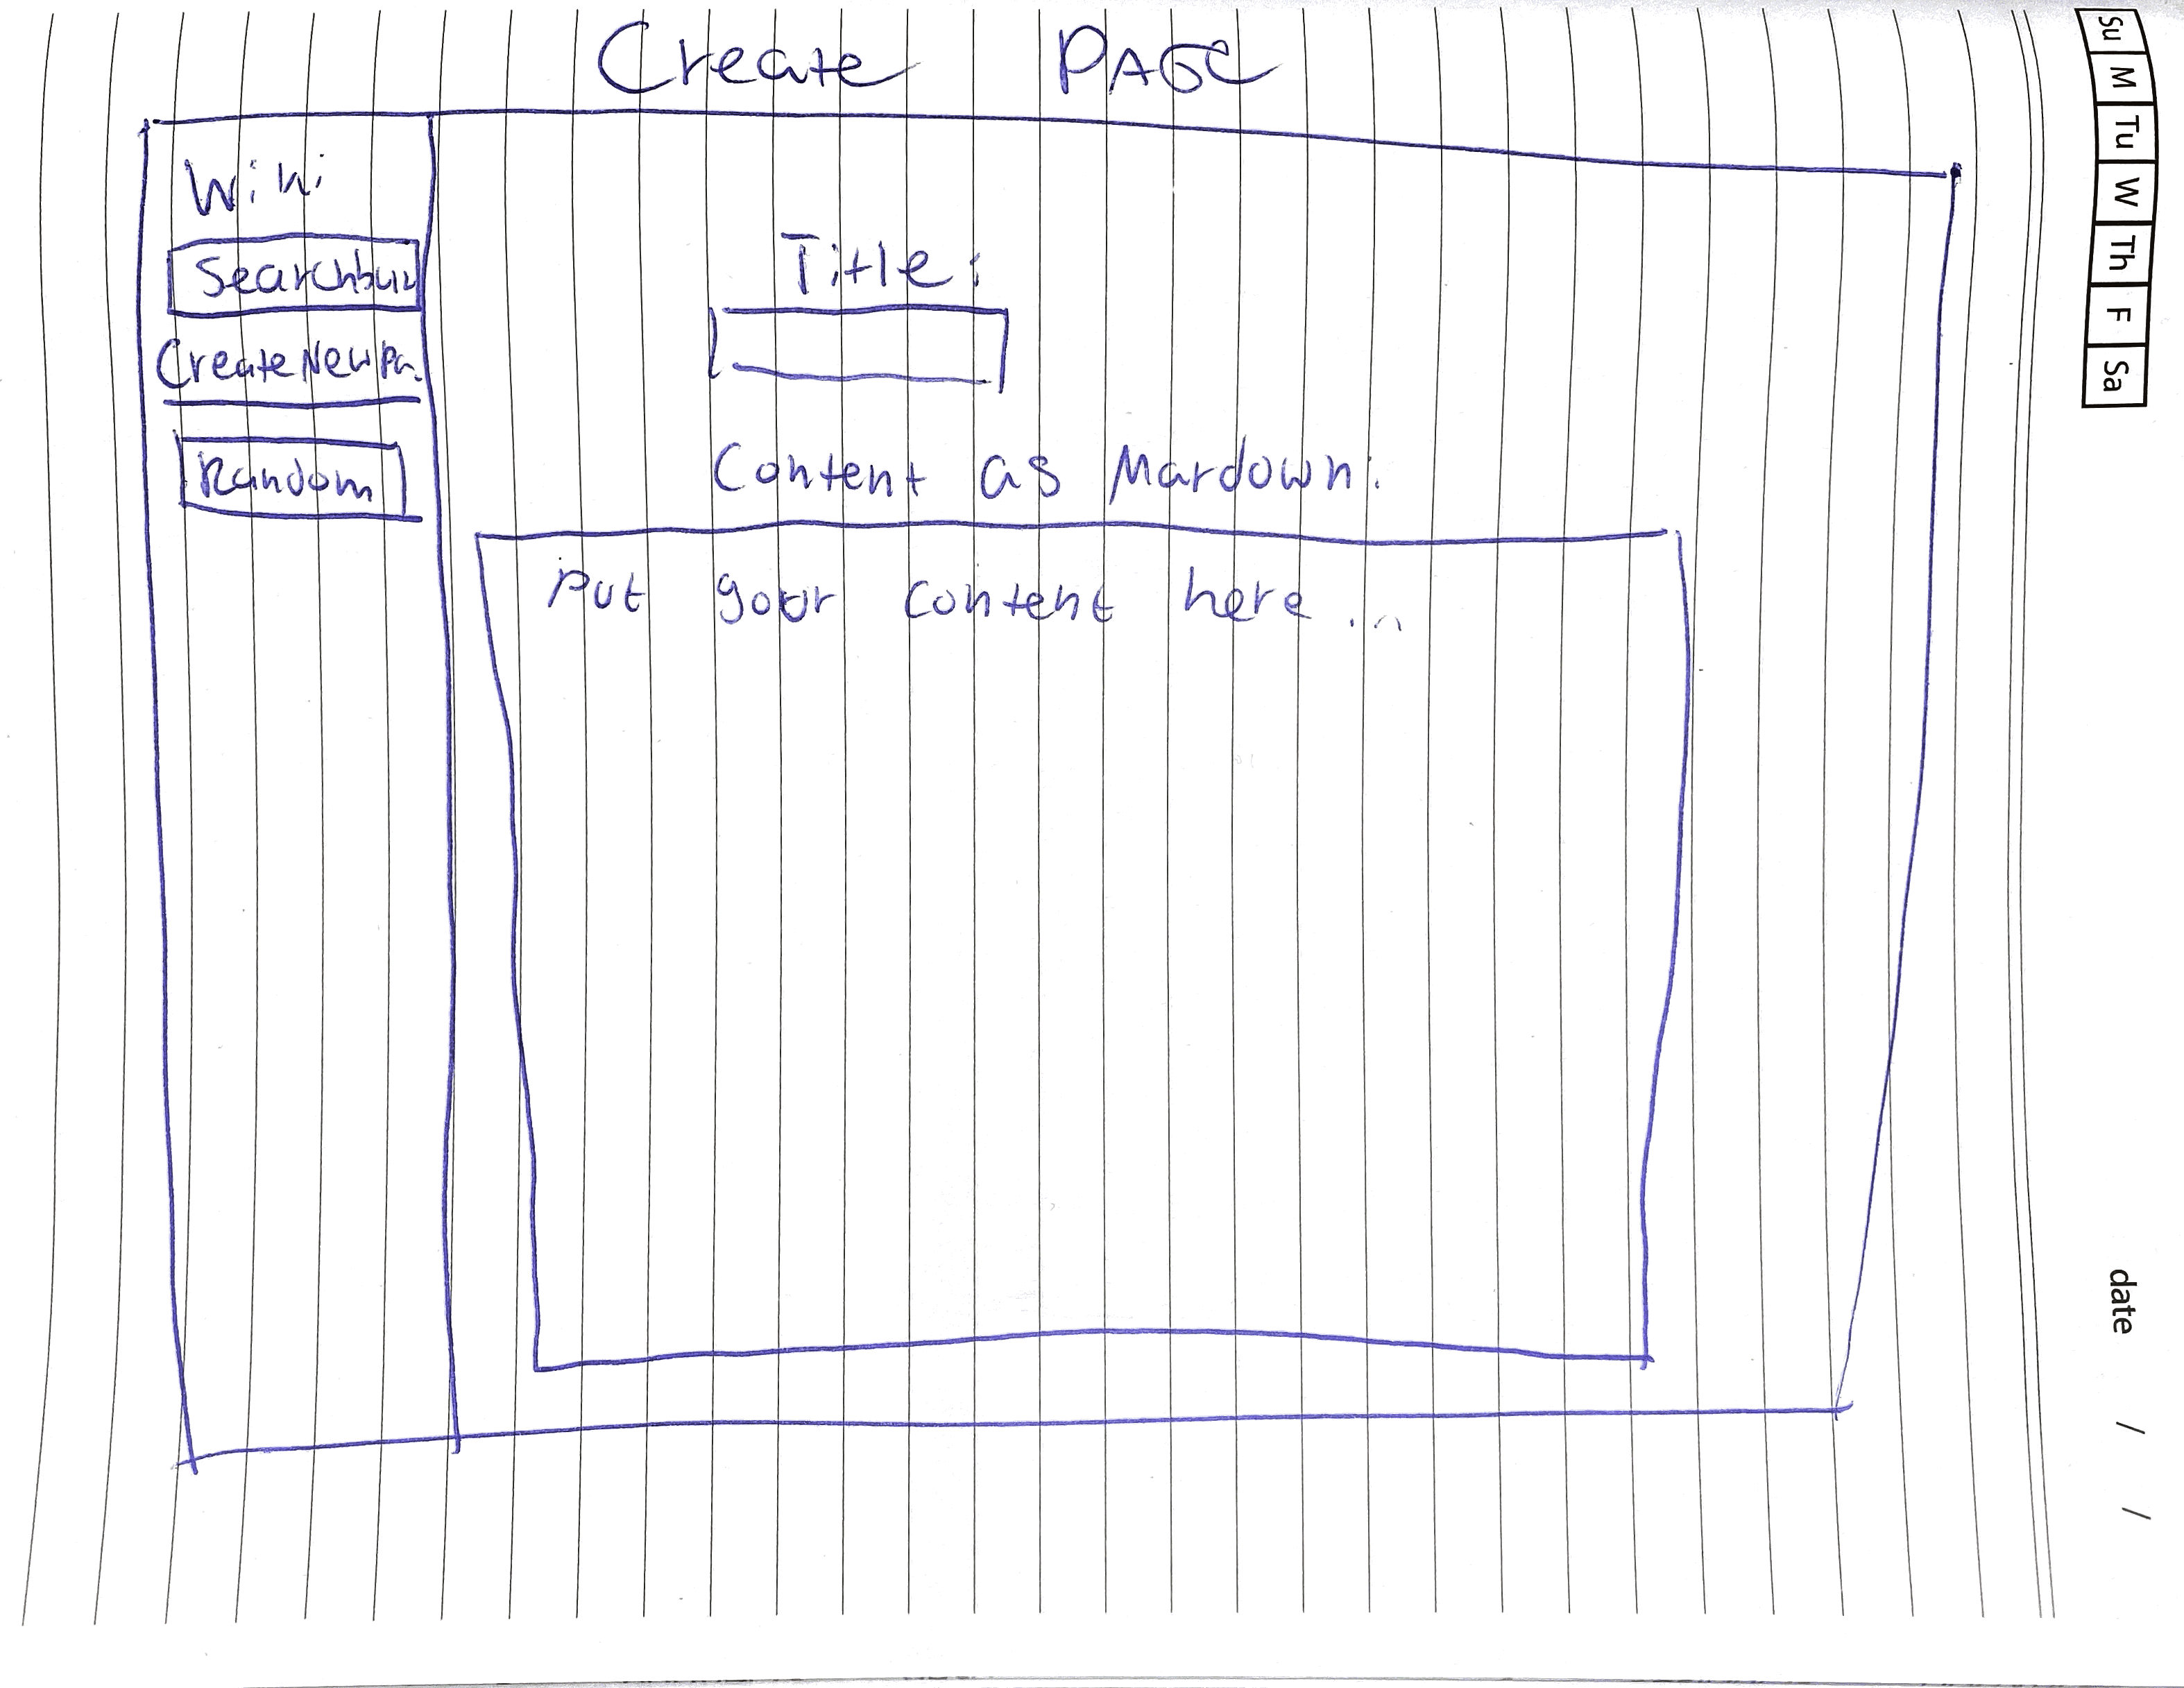 Create PAGE
Wiki
Searchbar
Create New Pa.
Random
Title:
Content as Mardown:
Put your content here ...
Su M Tu W Th F Sa
date / /